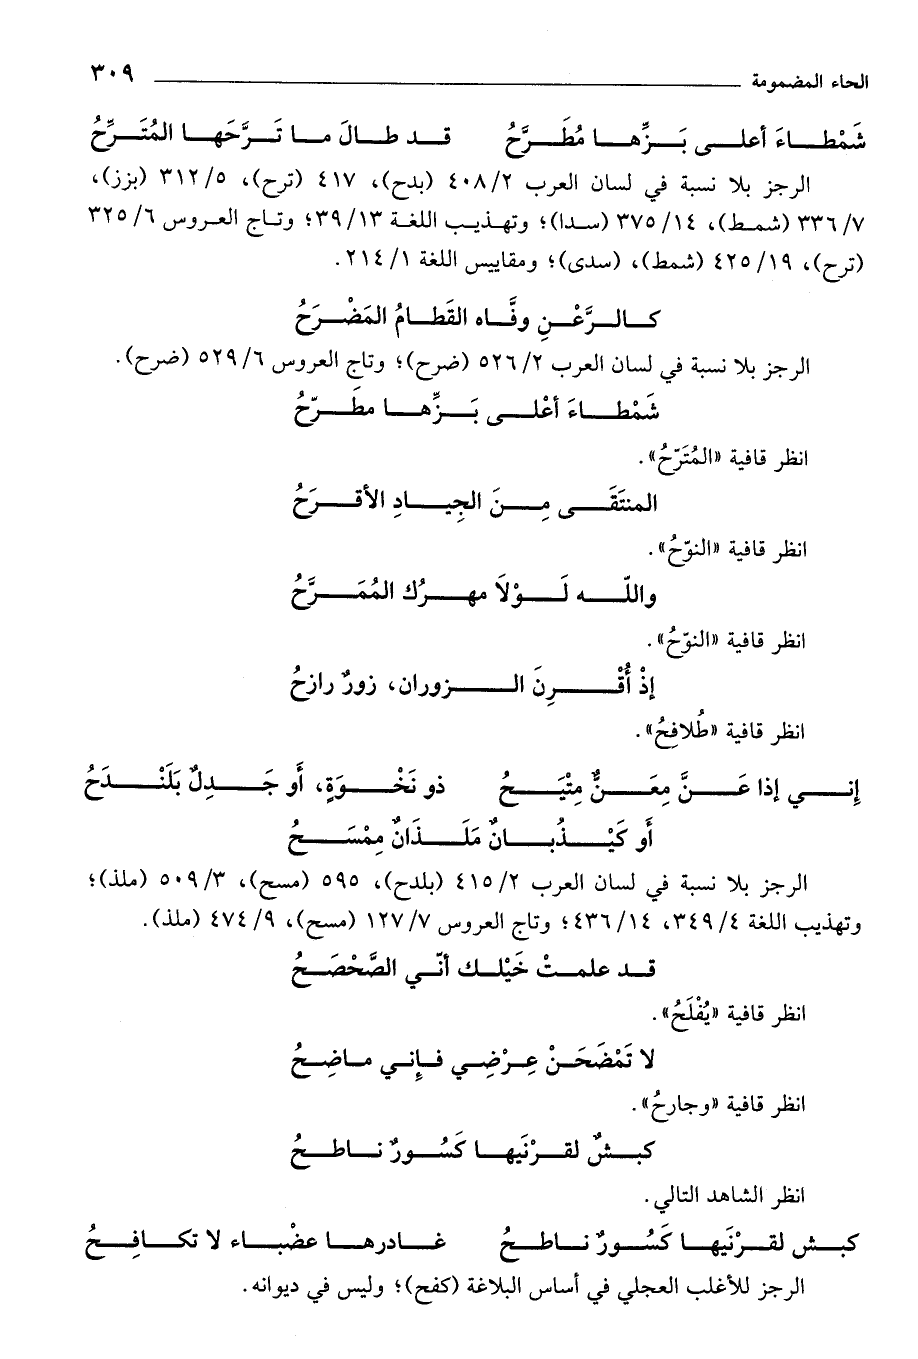 الحاء المضمومة ٣٠٩
شَمْطاءَ أعلى بَزِّها مُطَرَّحُ قد طالَ ما تَرَّحَها المُتَرِّحُ
الرجز بلا نسبة في لسان العرب ٤٠٨/٢ (بدح)، ٤١٧ (ترح)، ٣١٢/٥ (بزز)،
٣٣٦/٧ (شمط)، ٣٧٥/١٤ (سدا)؛ وتهذيب اللغة ٣٩/١٣؛ وتاج العروس ٣٢٥/٦
(ترح)، ٤٢٥/١٩ (شمط)، (سدى)؛ ومقاييس اللغة ٢١٤/١.
كالرَّعْنِ وفَّاه القَطامُ المَضْرَحُ
الرجز بلا نسبة في لسان العرب ٥٢٦/٢ (ضرح)؛ وتاج العروس ٥٢٩/٦ (ضرح).
شَمْطاءَ أعْلى بَزِّها مطَرّحُ
انظر قافية «المُتَرّحُ».
المنتَقَى مِنَ الجِيادِ الأقرَحُ
انظر قافية «النوّحُ».
واللّه لَوْلاَ مهرُك المُمَرَّحُ
انظر قافية «النوّحُ».
إذْ أُقْرِنَ الزوران، زورٌ رازحُ
انظر قافية «طُلافِحُ».
إني إذا عَنَّ مِعَنٌّ مِتْيَحُ ذو نَخْوَةٍ، أو جَدِلٌ بَلَنْدَحُ
أو كَيْذُبانٌ مَلَذَانٌ مِمْسَحُ
الرجز بلا نسبة في لسان العرب ٤١٥/٢ (بلدح)، ٥٩٥ (مسح)، ٥٠٩/٣ (ملذ)؛
وتهذيب اللغة ٣٤٩/٤، ٤٣٦/١٤؛ وتاج العروس ١٢٧/٧ (مسح)، ٤٧٤/٩ (ملذ).
قد علمتْ خَيْلك أنّي الصَّحْصَحُ
انظر قافية «يُفْلَحُ».
لا تَمْضَحَنْ عِرْضِي فإِني ماضِحُ
انظر قافية «وجارحُ».
كبشٌ لقرْنَيها كَسُورٌ ناطحُ
انظر الشاهد التالي.
كبش لقرْنَيها كَسُورٌ ناطحُ غادرها عضْباء لا تكافِحُ
الرجز للأغلب العجلي في أساس البلاغة (كفح)؛ وليس في ديوانه.